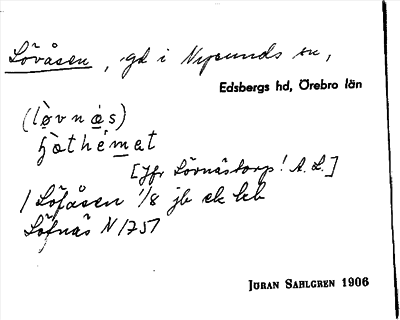 Lövåsen, gd i Nysunds sn,
Edsbergs hd, Örebro län
(lø̀vnås)
hòthémat
[Jfr Lövnästorp! A. L.]
/ Löfåsen 1/8 jb ek lcb
Löfnäs N 1757
JÖRAN SAHLGREN 1906